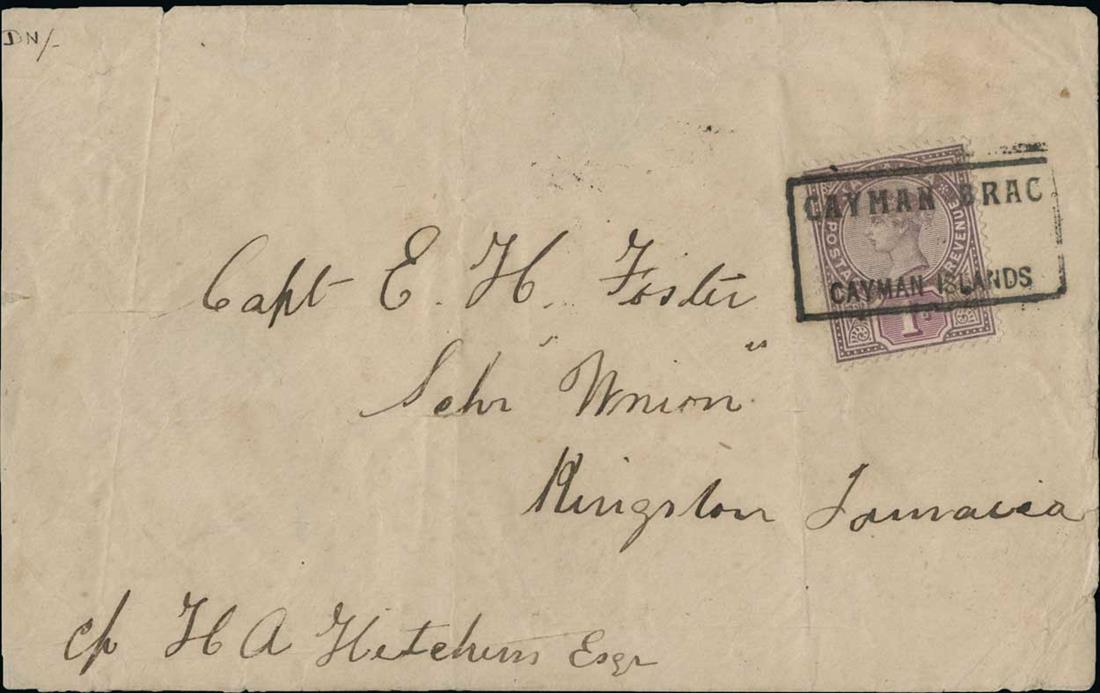 DN/-
CAYMAN BRAC
POSTA REVENUE
CAYMAN ISLANDS
1D
Capt E. H. Foster
Schr "Union"
Kingston Jamaica
c/o H A Hetchins Esqr